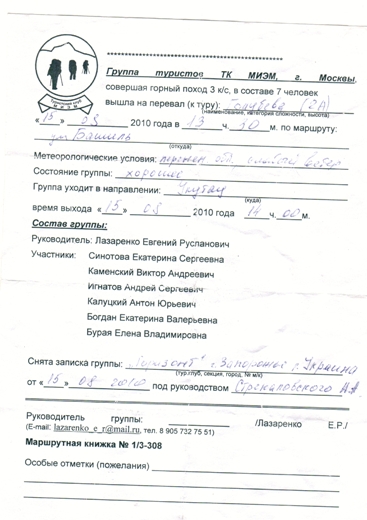 Туристский клуб
МИЭМ
Группа туристов ТК МИЭМ, г. Москвы,
совершая горный поход 3 к/с, в составе 7 человек
вышла на перевал (к туру): Голубева (2А)
(наименование, категория сложности, высота)
«15» 08 2010 года в 13 ч. 30 м. по маршруту:
Башиль
(откуда)
Метеорологические условия: перемен. обл., слабый ветер
Состояние группы: хорошее
Группа уходит в направлении:
(куда)
время выхода «15» 08 2010 года 14 ч. 00 м.
Состав группы:
Руководитель: Лазаренко Евгений Русланович
Участники: Синотова Екатерина Сергеевна
Каменский Виктор Андреевич
Игнатов Андрей Сергеевич
Калуцкий Антон Юрьевич
Богдан Екатерина Валерьевна
Бурая Елена Владимировна
Снята записка группы: "Горизонт" г. Запорожье, Украина
(тур.клуб, секция, город, № м/к)
от «15» 08 2010 под руководством
Руководитель группы: /Лазаренко Е.Р./
(E-mail: lazarenko_e_r@mail.ru, тел. 8 905 732 75 51)
Маршрутная книжка № 1/3-308
Особые отметки (пожелания)